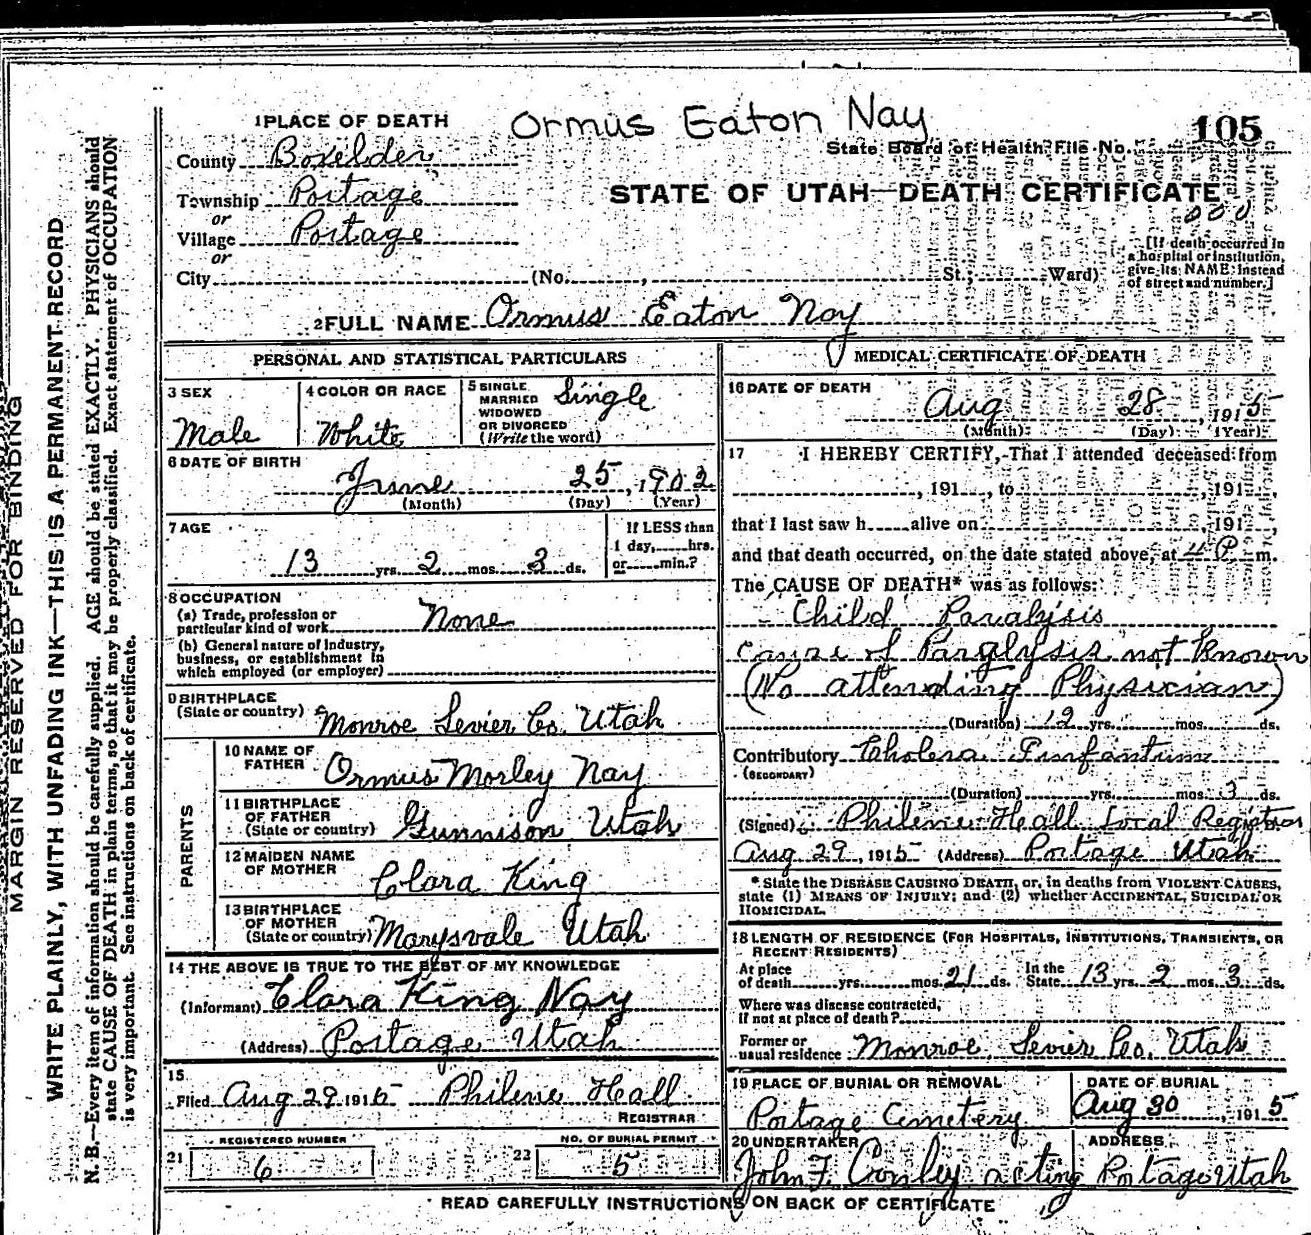 Ormus Eaton Nay
105
1 PLACE OF DEATH
State Board of Health File No.
County Boxelder
STATE OF UTAH—DEATH CERTIFICATE
Township Portage
or
Village Portage
or
City (No. , St., Ward)
[If death occurred in
a hospital or institution,
give its NAME instead
of street and number.]
2 FULL NAME Ormus Eaton Nay
PERSONAL AND STATISTICAL PARTICULARS
3 SEX
Male
4 COLOR OR RACE
White
5 SINGLE
MARRIED
WIDOWED
OR DIVORCED
(Write the word)
Single
6 DATE OF BIRTH
June 25, 1902
(Month) (Day) (Year)
7 AGE
13 yrs. 2 mos. 3 ds.
If LESS than
1 day, hrs.
or min.?
8 OCCUPATION
(a) Trade, profession or
particular kind of work None
(b) General nature of industry,
business, or establishment in
which employed (or employer)
9 BIRTHPLACE
(State or country) Monroe Sevier Co. Utah
PARENTS
10 NAME OF
FATHER Ormus Morley Nay
11 BIRTHPLACE
OF FATHER
(State or country) Gunnison Utah
12 MAIDEN NAME
OF MOTHER Clara King
13 BIRTHPLACE
OF MOTHER
(State or country) Marysvale Utah
14 THE ABOVE IS TRUE TO THE BEST OF MY KNOWLEDGE
(Informant) Clara King Nay
(Address) Portage Utah
15
Filed Aug 29 1915 Philene Hall
REGISTRAR
REGISTERED NUMBER
21 6
NO. OF BURIAL PERMIT
22 5
MEDICAL CERTIFICATE OF DEATH
16 DATE OF DEATH
Aug 28, 1915
(Month) (Day) (Year)
17 I HEREBY CERTIFY, That I attended deceased from
, 191 , to , 191 ,
that I last saw h alive on , 191 ,
and that death occurred, on the date stated above, at 4 P m.
The CAUSE OF DEATH* was as follows:
Child Paralysis
cause of Paralysis not known
(No attending Physician)
(Duration) 12 yrs. mos. ds.
Contributory Cholera Infantum
(SECONDARY)
(Duration) yrs. mos. 3 ds.
(Signed) Philene Hall Local Registrar
Aug 29, 1915 (Address) Portage Utah
*State the DISEASE CAUSING DEATH, or, in deaths from VIOLENT CAUSES,
state (1) MEANS OF INJURY; and (2) whether ACCIDENTAL, SUICIDAL OR
HOMICIDAL.
18 LENGTH OF RESIDENCE (FOR HOSPITALS, INSTITUTIONS, TRANSIENTS, OR
RECENT RESIDENTS)
At place
of death yrs. mos. 21 ds. In the
State 13 yrs. 2 mos. 3 ds.
Where was disease contracted,
if not at place of death?
Former or
usual residence Monroe, Sevier Co. Utah
19 PLACE OF BURIAL OR REMOVAL
Portage Cemetery
DATE OF BURIAL
Aug 30, 1915
20 UNDERTAKER
John F. Conley acting
ADDRESS
Portage Utah
READ CAREFULLY INSTRUCTIONS ON BACK OF CERTIFICATE
MARGIN RESERVED FOR BINDING
WRITE PLAINLY, WITH UNFADING INK—THIS IS A PERMANENT RECORD
N. B.—Every item of information should be carefully supplied. AGE should be stated EXACTLY. PHYSICIANS should
state CAUSE OF DEATH in plain terms, so that it may be properly classified. Exact statement of OCCUPATION
is very important. See instructions on back of certificate.